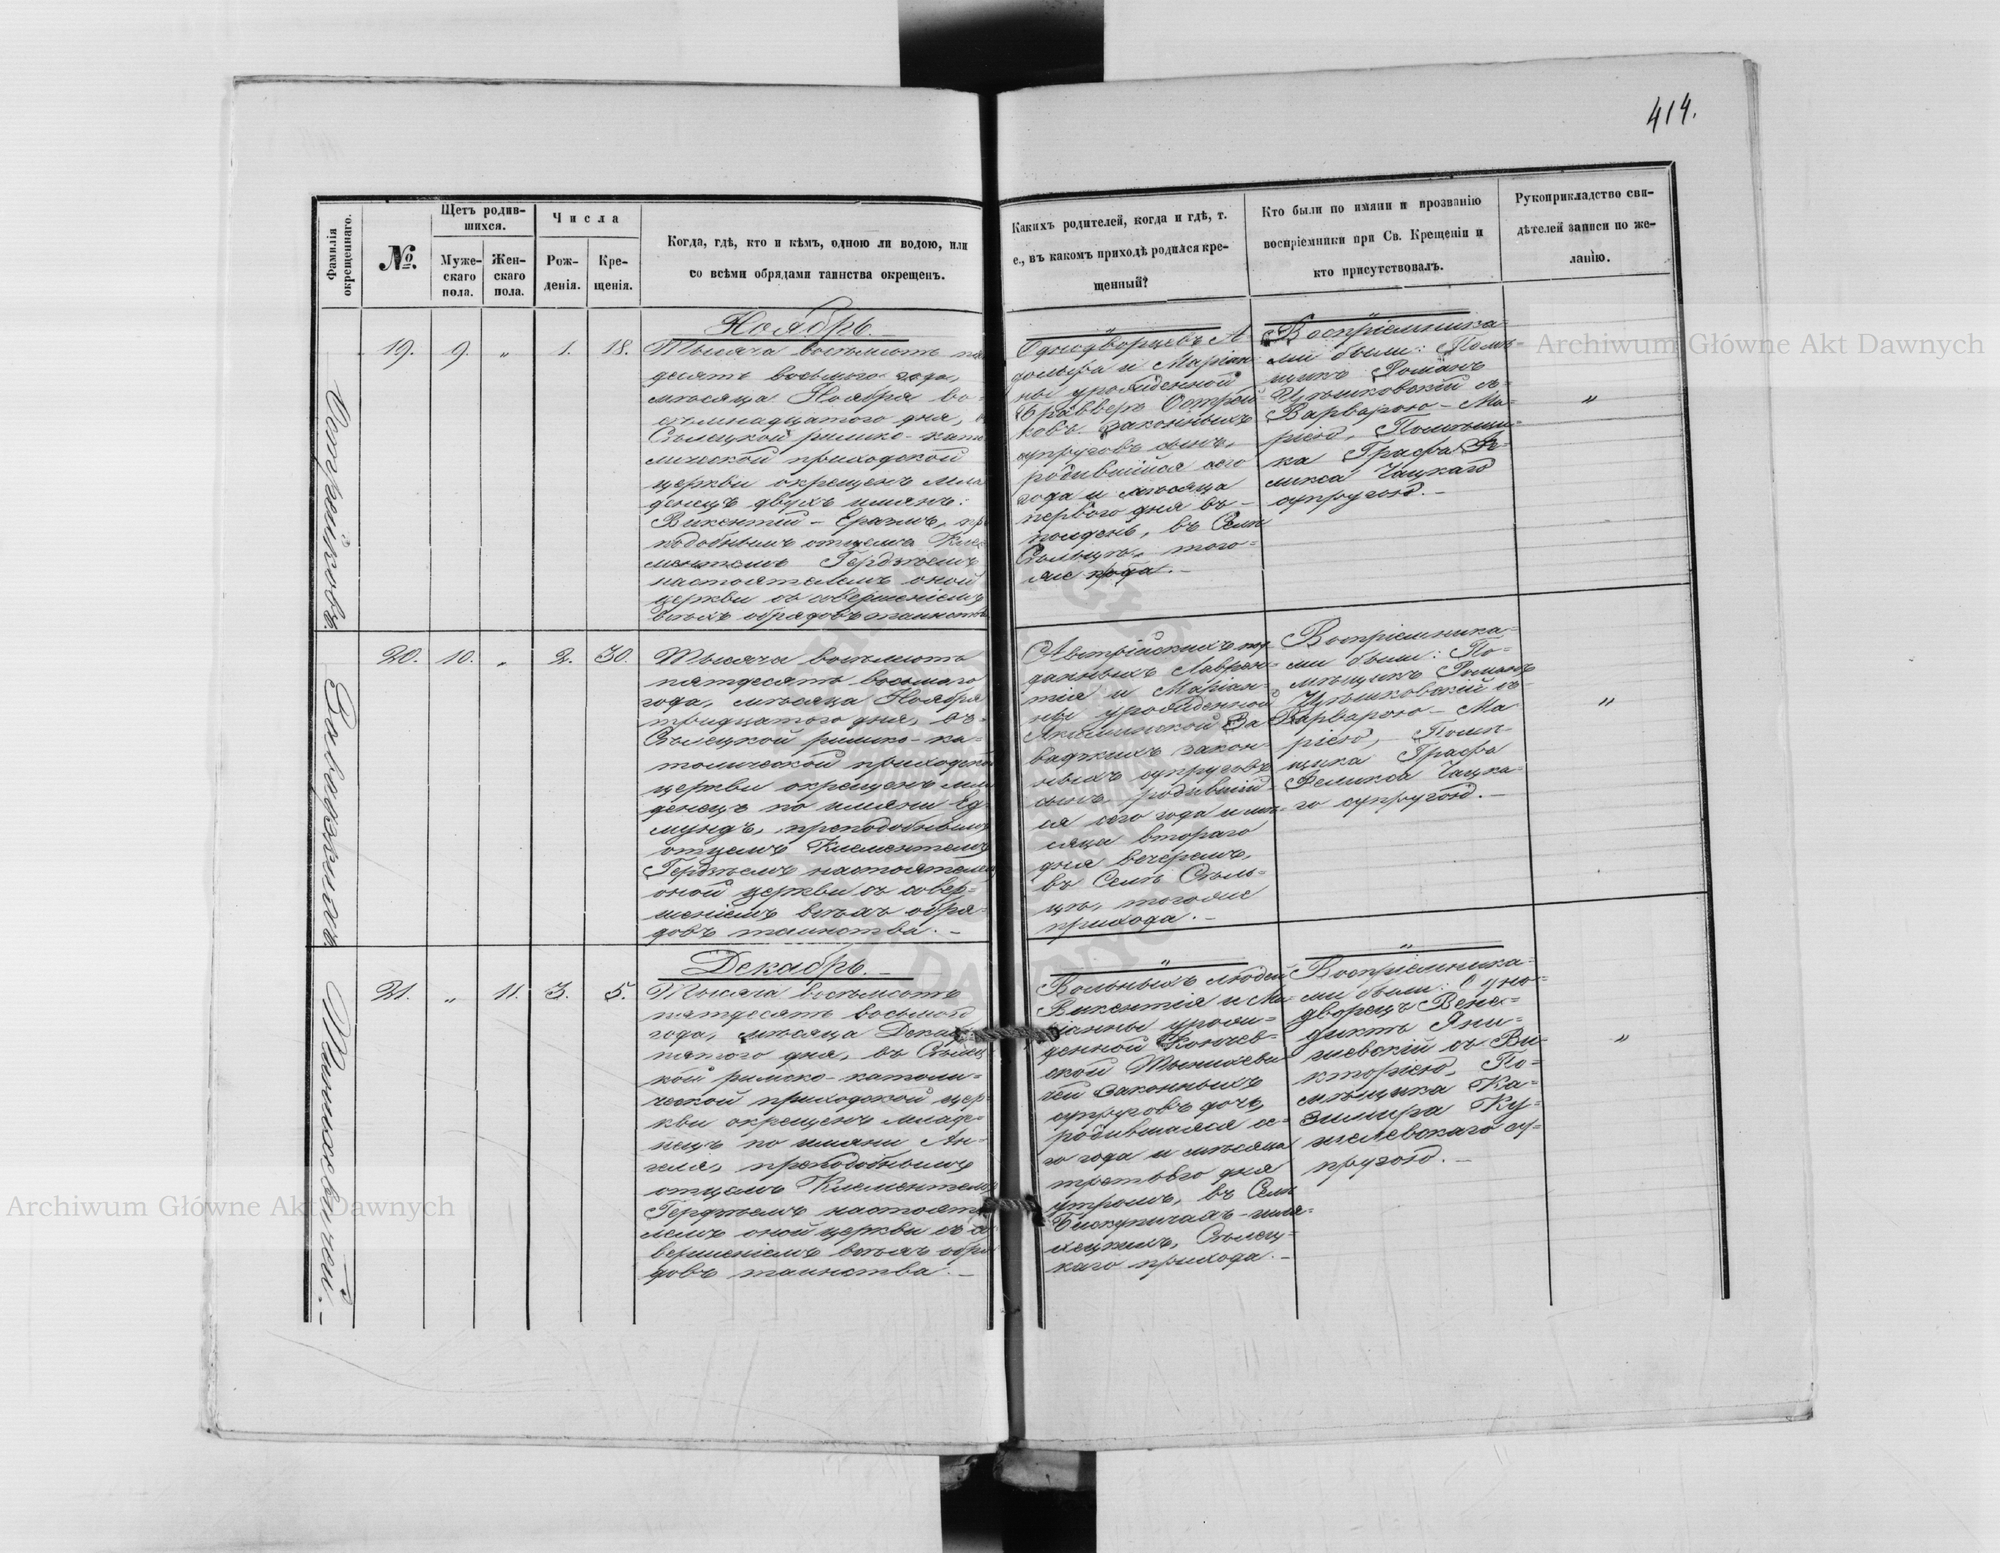 414.
Фамилія окрещеннаго.
№.
Щетъ родившихся.
Мужескаго пола.
Женскаго пола.
Числа
Рожденія.
Крещенія.
Когда, гдѣ, кто и кѣмъ, одною ли водою, или
со всѣми обрядами таинства окрещенъ.
Каких родителей, когда и гдѣ, т.
е., въ какомъ приходѣ родился кре-
щенный?
Кто были по имяни и прозванію
воспріемники при Св. Крещеніи и
кто присутствовалъ.
Рукоприкладство сви-
дѣтелей записи по же-
ланію.
Ноябрь.
19. 9. „ 1. 18.
Тысяча восемьсотъ пя
десять восьмого года,
мѣсяца Ноября во-
семнадцатого дня, в
Сѣлецкой римско-като
лической приходской
церкви окрещенъ мла
денецъ двухъ имянъ:
Викентій - Еразмъ, пр
подобнымъ отцемъ Кле
ментемъ
настоятелемъ оной
церкви съ совершеніемъ
всѣхъ обрядовъ таинств
Однодворцевъ А
дольфа и Маріан
ны урожденной
законныхъ
супруговъ сынъ,
родившійся сего
года и мѣсяца
первого дня въ
полдень, въ Селѣ
Сѣльцѣ, того-
же
Воспріемника-
ми были: Помѣ-
щикъ Романъ
Цѣшковскій съ
Варварою - Ма-
ріею, Помѣщи-
ка Графа Фе-
ликса Чацкаго
супругою. -
„
20. 10. „ 2. 30.
Тысяча восемьсотъ
пятдесятъ восьмаго
года, мѣсяца Ноября
тридцатого дня, въ
Сѣлецкой римско-ка-
толической приходской
церкви окрещенъ мла
денецъ по имяни Ед-
мундъ, преподобнымъ
отцемъ Клементемъ
настоятелемъ
оной церкви съ совер-
шеніемъ всѣхъ обря-
довъ таинства. -
Австрійскихъ под
данныхъ Лаврен-
тія и Маріан-
ны урожденной
За
вадзкихъ закон-
ныхъ супруговъ
сынъ, родившій-
ся сего года и мѣ-
сяца втораго
дня вечеромъ,
въ Селѣ Сѣль-
цѣ, тогоже
прихода. -
Воспріемника-
ми были: По-
мѣщикъ Романъ
Цѣшковскій съ
Варварою - Ма
ріею, Помѣ-
щика Графа
Феликса Чацка-
го супругою. -
„
Декабрь. -
21. „ 11. 3. 5.
Тысяча восемьсотъ
пятдесятъ восьмого
года, мѣсяца Декаб
пятого дня, въ Сѣлец
кой римско-католи-
ческой приходской цер-
кви окрещенъ младе-
нецъ по имяни Ан-
геля, преподобнымъ
отцемъ Клементемъ
настояте
лемъ оной церкви съ со
вершеніемъ всѣхъ обря
довъ таинства. -
Вольныхъ людей
Викентія и Ма-
ріанны урож-
денной
законныхъ
супруговъ дочь,
родившаяся се-
го года и мѣсяца
третьего дня
утромъ, въ Селѣ
Бискупичахъ-шля-
хецкихъ, Сѣлец-
каго прихода. -
Воспріемника-
ми были: Одно-
дворецъ Бене-
диктъ Яни-
шевскій съ Ви-
кторіею, По-
мѣщика Ка-
зимира
су-
пругою. -
„
Archiwum Główne Akt Dawnych
Archiwum Główne Akt Dawnych